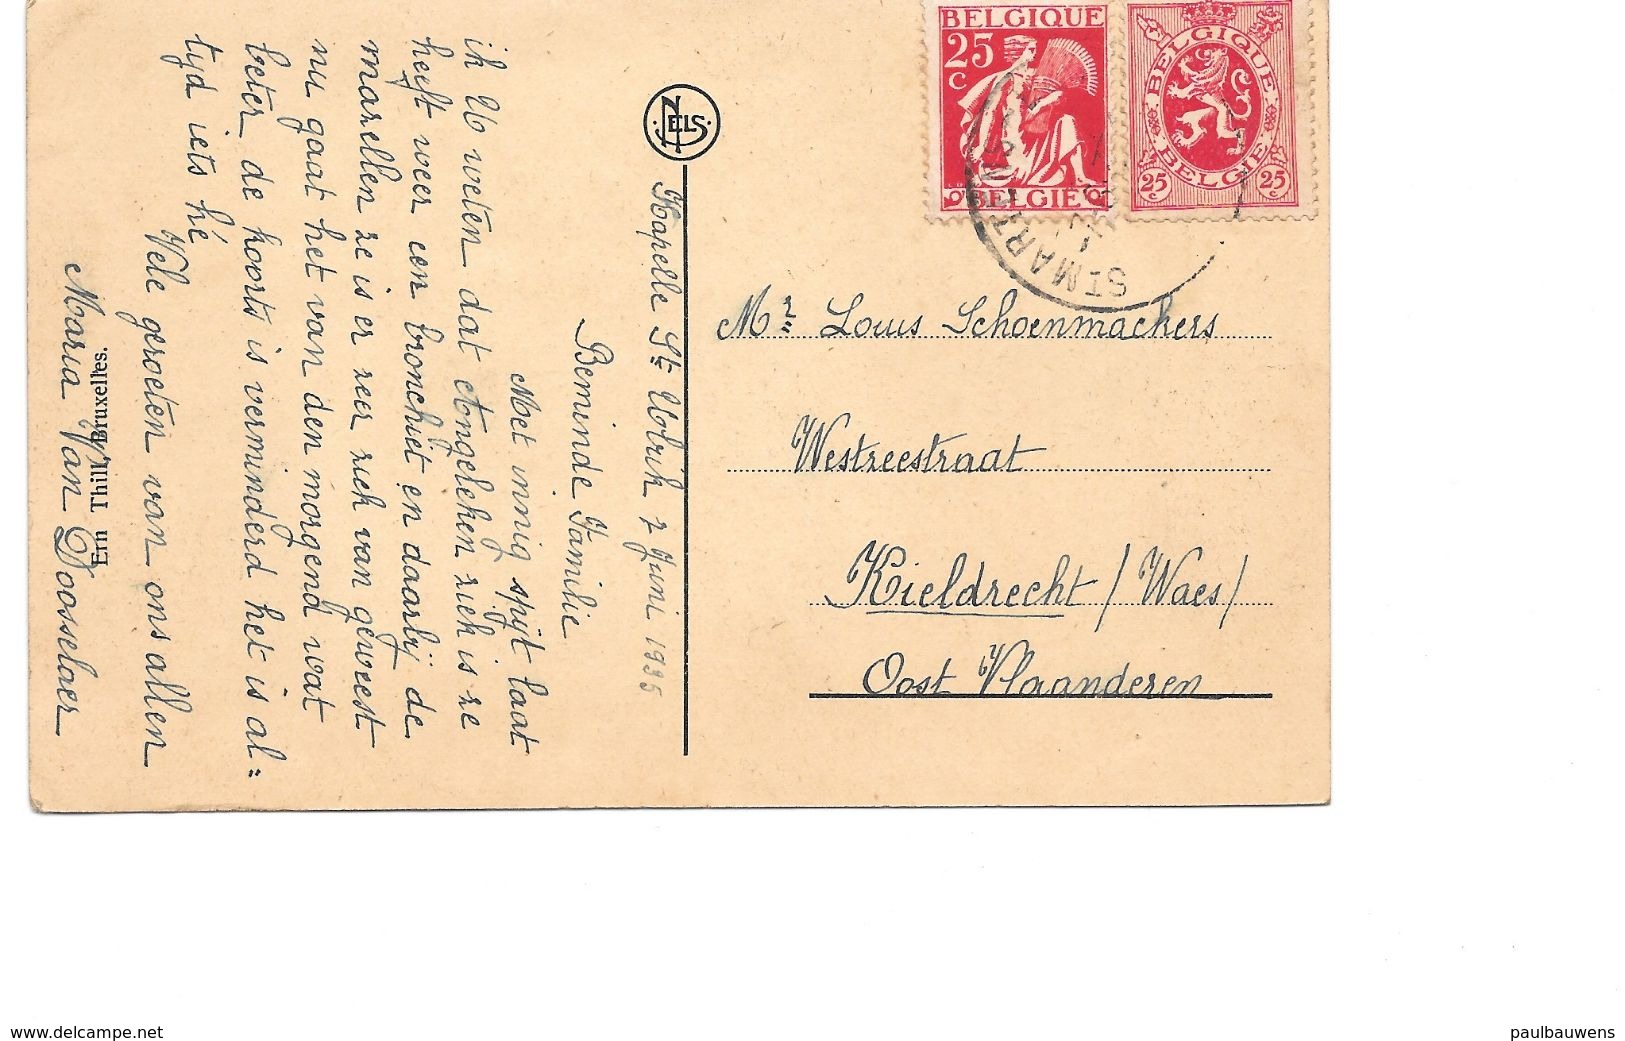 BELGIQUE
25
C
BELGIË
BELGIQUE
BELGIE
25 25
ST MART
NELS
Kapelle St Ulrik 7 Juni 1935
Beminde Familie
Met innig spijt laat
ik U weten dat Angeleken ziek is ze
heeft weer een bronchiet en daarbij de
mazellen ze is er zeer ziek van geweest
nu gaat het van den morgend wat
beter de koorts is verminderd het is al=
tyd iets hé
Vele groeten van ons allen
Maria Van Doosselaer
Ern Thill, Bruxelles.
Mr. Louis Schoenmackers
Westzeestraat
Kieldrecht / Waes /
Oost Vlaanderen
www.delcampe.net
paulbauwens